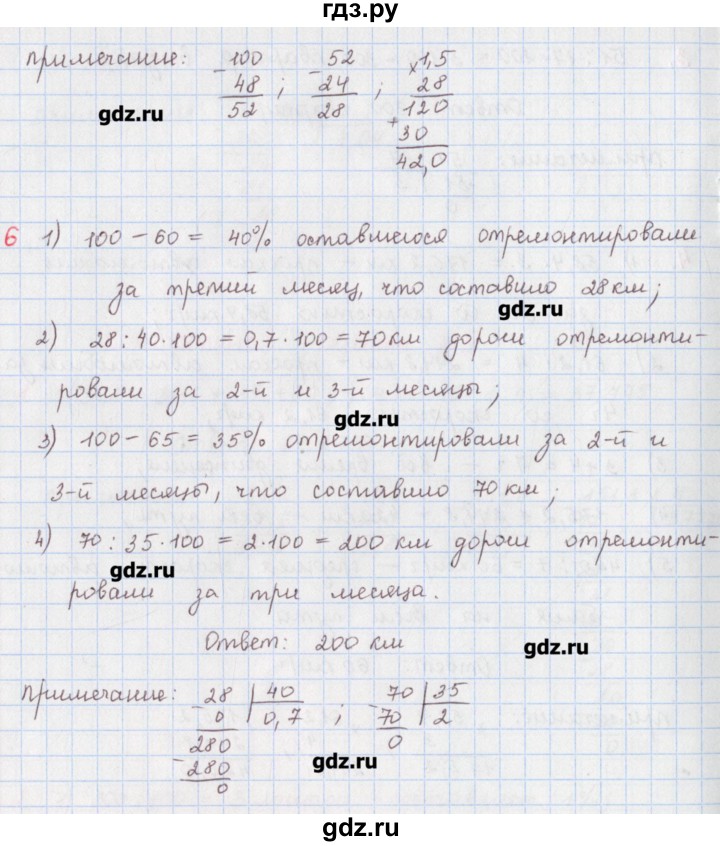 гдз.ру
примечание: -100 -52 ×1,5
48 ; 24 ; 28
52 28 120
+
30
42,0
gdz.ru
6 1) 100 - 60 = 40% оставшегося отремонтировали
за третий месяц, что составило 28 км;
gdz.ru
2) 28 : 40 · 100 = 0,7 · 100 = 70 км дороги отремонти-
ровали за 2-й и 3-й месяцы;
gdz.ru
3) 100 - 65 = 35% отремонтировали за 2-й и
3-й месяцы, что составило 70 км;
4) 70 : 35 · 100 = 2 · 100 = 200 км дороги отремонти-
gdz.ru
ровали за три месяца.
Ответ: 200 км
gdz.ru
примечание: -28 40 -70 35
0 0,7 ; 70 2
280 0
-280
0
gdz.ru
gdz.ru